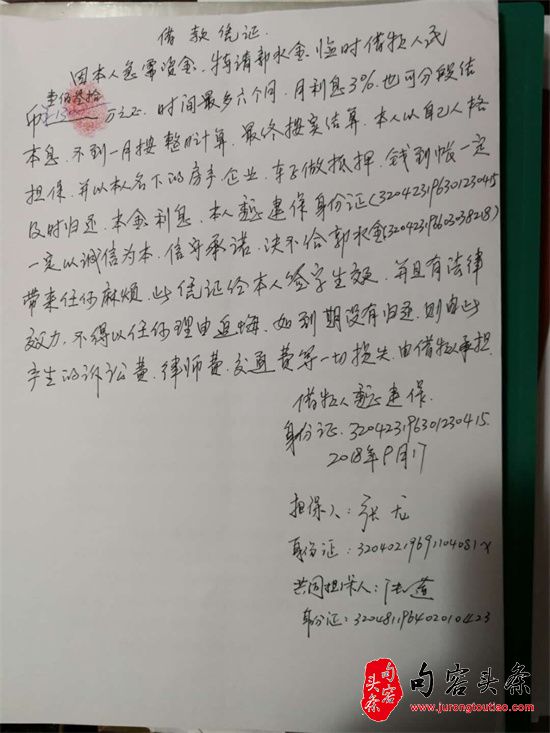 借款凭证
因本人急需资金，特请郭水金临时借款人民
壹佰叁拾
币 130 万元正，时间最多六个月，月利息3%，也可分段结
本息，不到一月按整月计算，最终按实结算，本人以自己人格
担保，并以本人名下的房子、企业、车子做抵押，钱到帐一定
及时归还，本金利息，本人 建保身份证(320423196301230415
一定以诚信为本，信守承诺，决不给郭水金(320423196603038218)
带来任何麻烦，此凭证经本人签字生效，并且有法律
效力，不得以任何理由反悔，如到期没有归还，则由此
产生的诉讼费、律师费、交通费等一切损失，由借款人承担
借款人 建保
身份证：320423196301230415
2018年9月17
担保人：张
身份证：32040219691104081X
共同担保人：
身份证：320481196402010423
头条
句容头条
www.jurongtoutiao.com